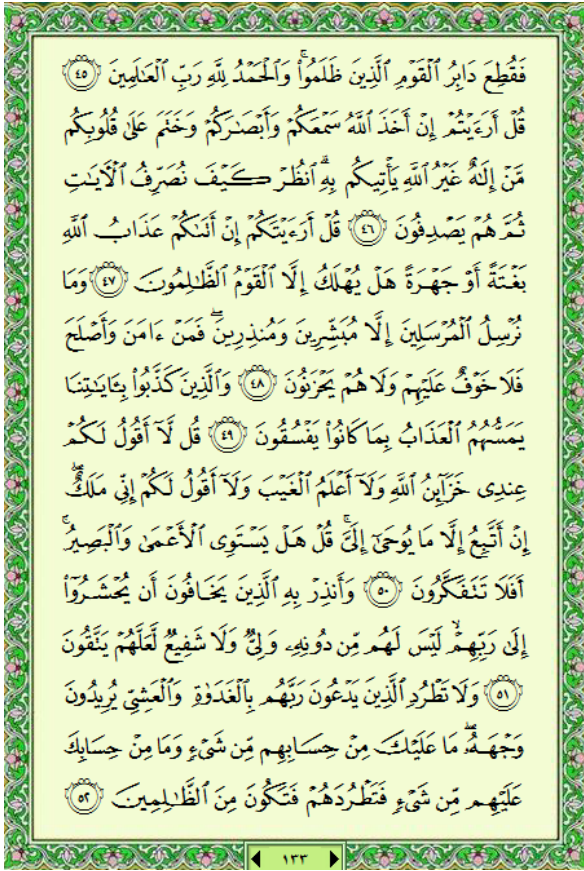 فَقُطِعَ دَابِرُ ٱلْقَوْمِ ٱلَّذِينَ ظَلَمُوا۟ ۚ وَٱلْحَمْدُ لِلَّهِ رَبِّ ٱلْعَـٰلَمِينَ ٤٥
قُلْ أَرَءَيْتُمْ إِنْ أَخَذَ ٱللَّهُ سَمْعَكُمْ وَأَبْصَـٰرَكُمْ وَخَتَمَ عَلَىٰ قُلُوبِكُم
مَّنْ إِلَـٰهٌ غَيْرُ ٱللَّهِ يَأْتِيكُم بِهِ ۗ ٱنظُرْ كَيْفَ نُصَرِّفُ ٱلْـَٔايَـٰتِ
ثُمَّ هُمْ يَصْدِفُونَ ٤٦ قُلْ أَرَءَيْتَكُمْ إِنْ أَتَىٰكُمْ عَذَابُ ٱللَّهِ
بَغْتَةً أَوْ جَهْرَةً هَلْ يُهْلَكُ إِلَّا ٱلْقَوْمُ ٱلظَّـٰلِمُونَ ٤٧ وَمَا
نُرْسِلُ ٱلْمُرْسَلِينَ إِلَّا مُبَشِّرِينَ وَمُنذِرِينَ ۖ فَمَنْ ءَامَنَ وَأَصْلَحَ
فَلَا خَوْفٌ عَلَيْهِمْ وَلَا هُمْ يَحْزَنُونَ ٤٨ وَٱلَّذِينَ كَذَّبُوا۟ بِـَٔايَـٰتِنَا
يَمَسُّهُمُ ٱلْعَذَابُ بِمَا كَانُوا۟ يَفْسُقُونَ ٤٩ قُل لَّآ أَقُولُ لَكُمْ
عِندِى خَزَآئِنُ ٱللَّهِ وَلَآ أَعْلَمُ ٱلْغَيْبَ وَلَآ أَقُولُ لَكُمْ إِنِّى مَلَكٌ ۖ
إِنْ أَتَّبِعُ إِلَّا مَا يُوحَىٰٓ إِلَىَّ ۚ قُلْ هَلْ يَسْتَوِى ٱلْأَعْمَىٰ وَٱلْبَصِيرُ ۚ
أَفَلَا تَتَفَكَّرُونَ ٥٠ وَأَنذِرْ بِهِ ٱلَّذِينَ يَخَافُونَ أَن يُحْشَرُوٓا۟
إِلَىٰ رَبِّهِمْ ۙ لَيْسَ لَهُم مِّن دُونِهِۦ وَلِىٌّ وَلَا شَفِيعٌ لَّعَلَّهُمْ يَتَّقُونَ
٥١ وَلَا تَطْرُدِ ٱلَّذِينَ يَدْعُونَ رَبَّهُم بِٱلْغَدَوٰةِ وَٱلْعَشِىِّ يُرِيدُونَ
وَجْهَهُۥ ۖ مَا عَلَيْكَ مِنْ حِسَابِهِم مِّن شَىْءٍ وَمَا مِنْ حِسَابِكَ
عَلَيْهِم مِّن شَىْءٍ فَتَطْرُدَهُمْ فَتَكُونَ مِنَ ٱلظَّـٰلِمِينَ ٥٢
١٣٣